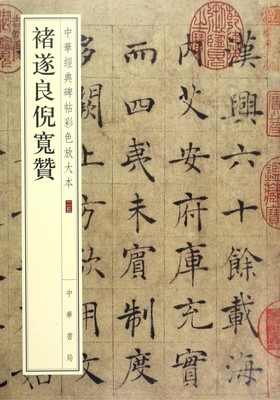 褚遂良倪寬贊
中華經典碑帖彩色放大本
中華書局
漢興六十餘載海
內艾安府庫充實
而四夷未賓制度
多闕上方欲用